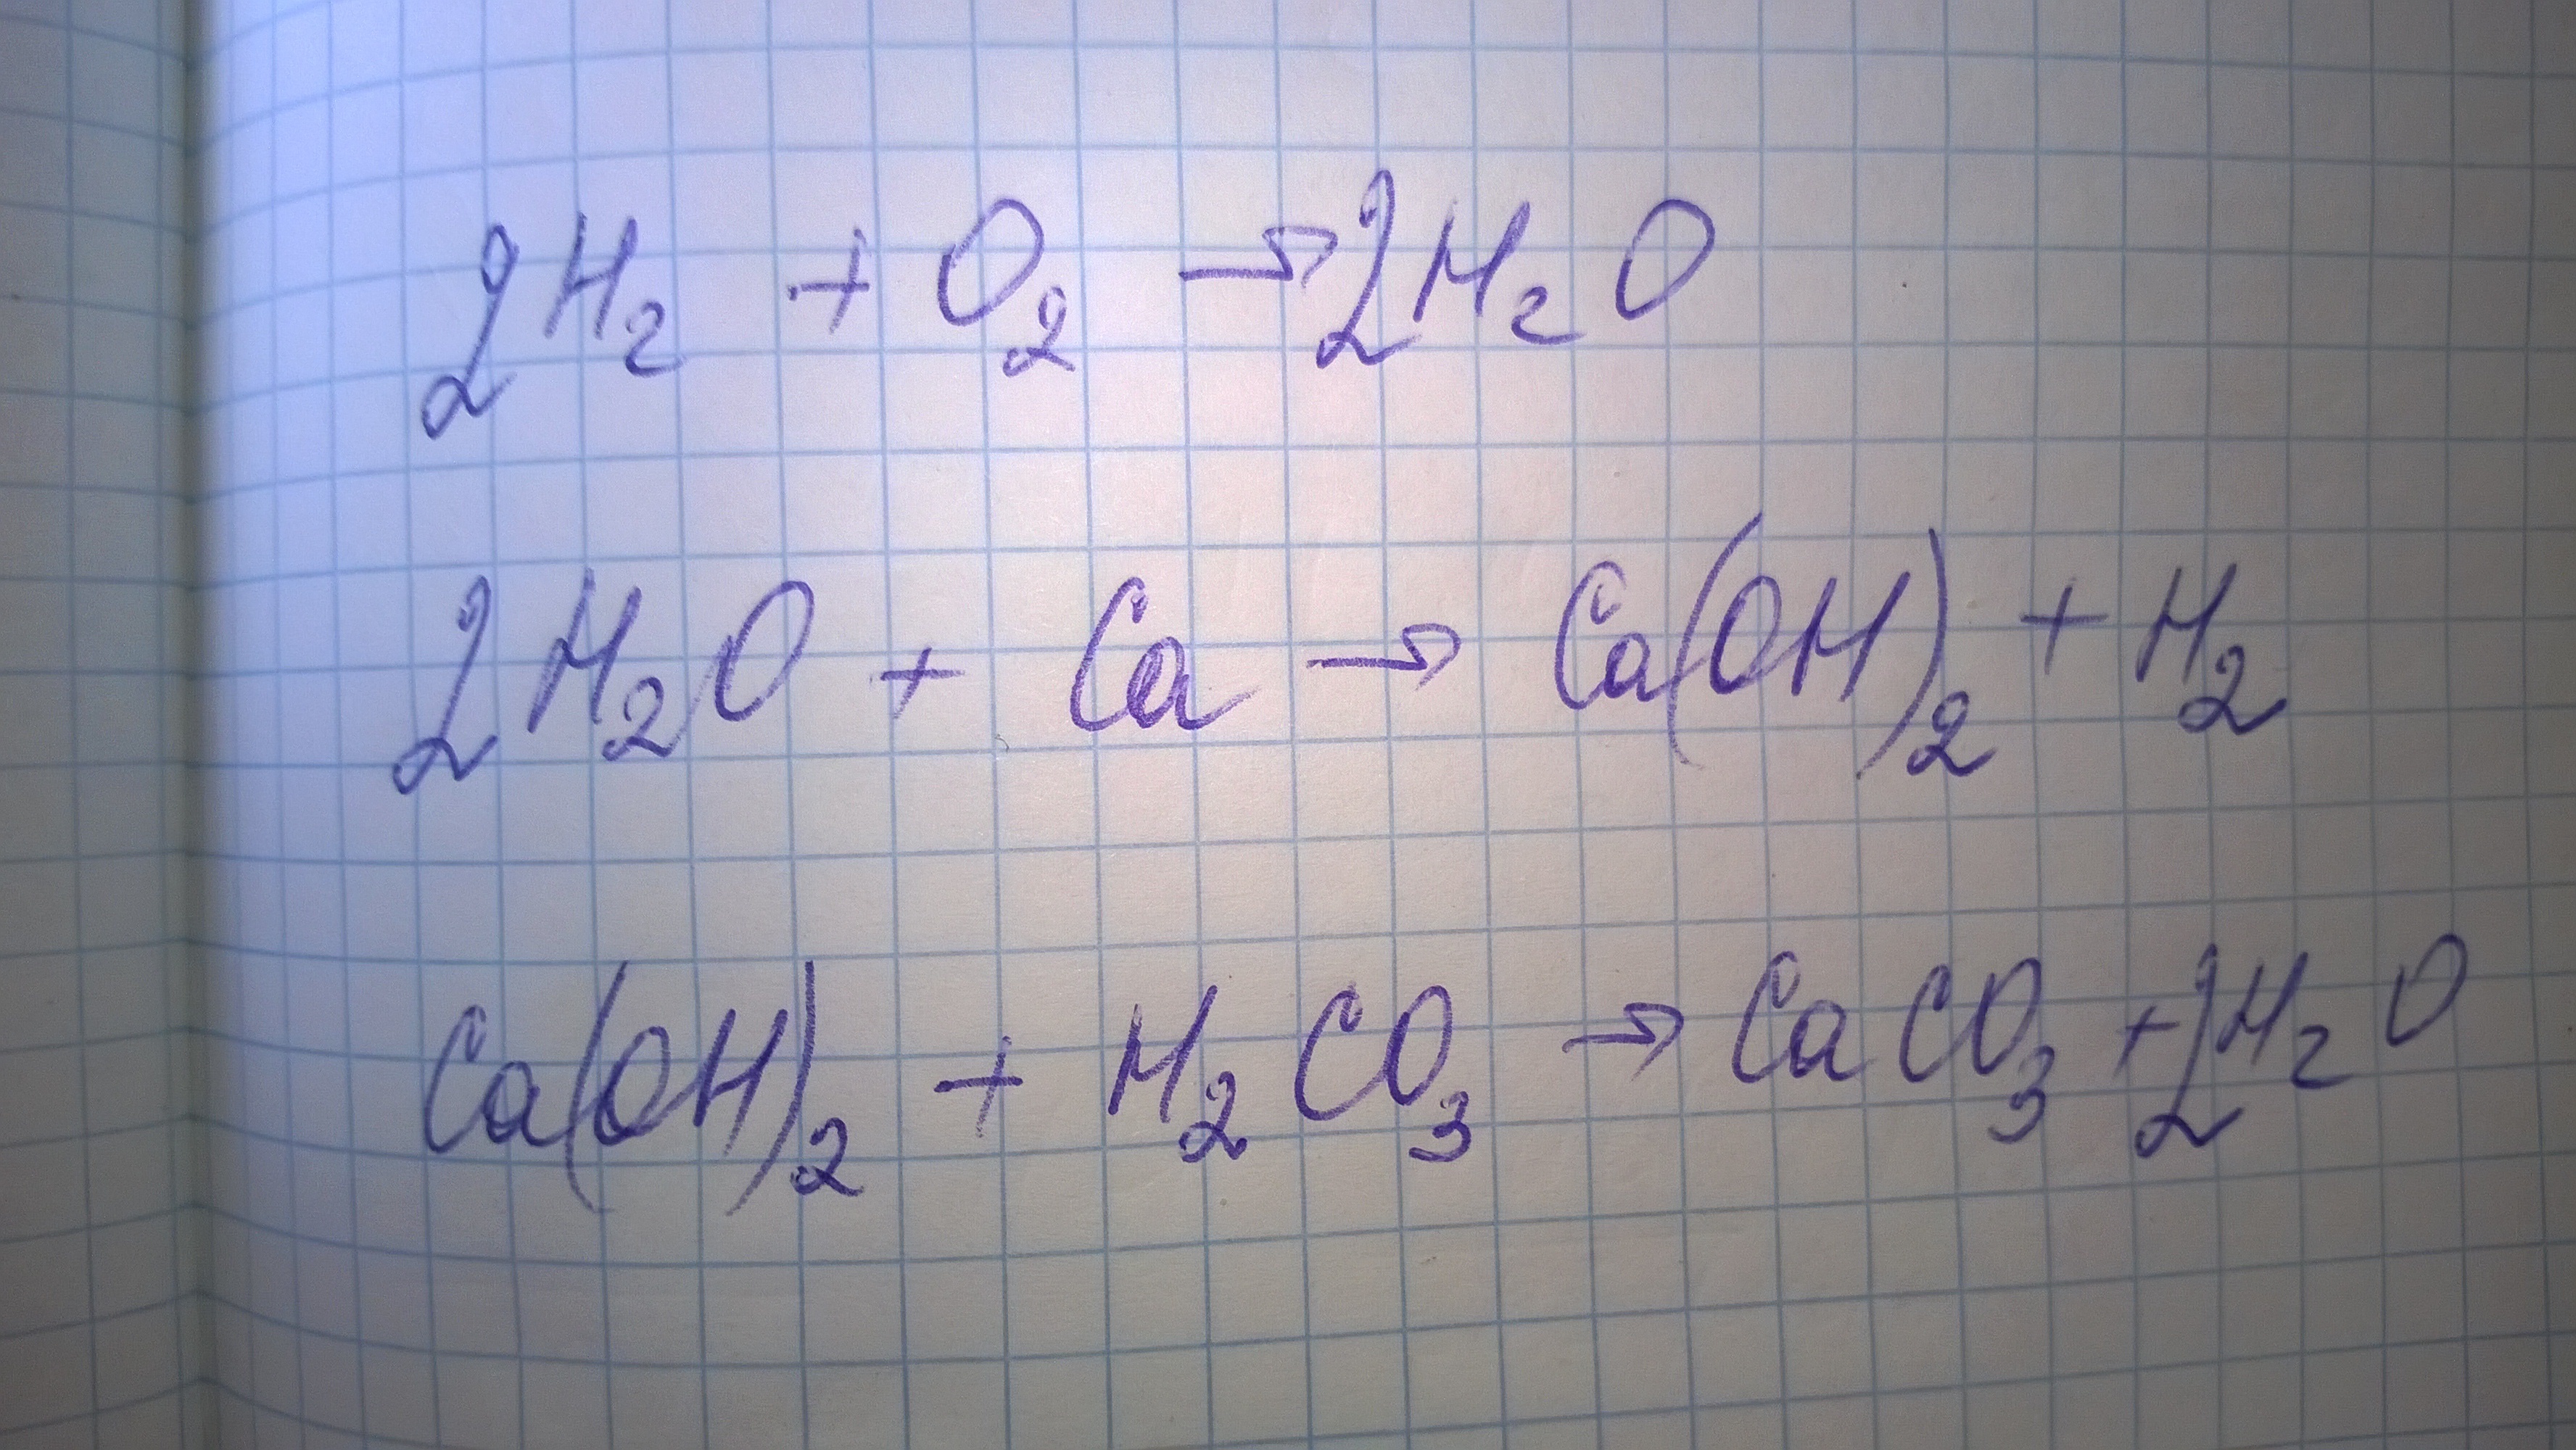 2H₂ + O₂ → 2H₂O
2H₂O + Ca → Ca(OH)₂ + H₂
Ca(OH)₂ + H₂CO₃ → CaCO₃ + 2H₂O